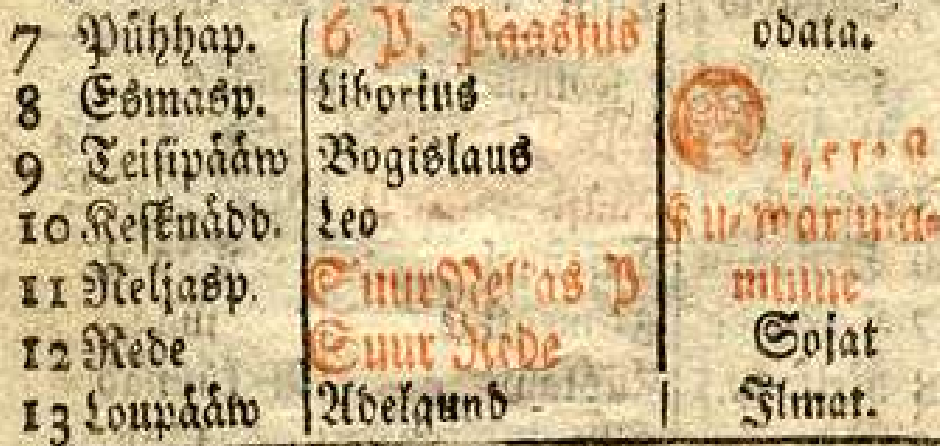 7 Pühhap. 6 P. Paastus odata.
8 Esmasp. Liborius
9 Teisipääw Bogislaus
10 Kesknädd. Leo
11 Neljasp. Suur Neljas P
12 Rede Suur Rede Sojat
13 Loupääw Adelgund Ilmat.